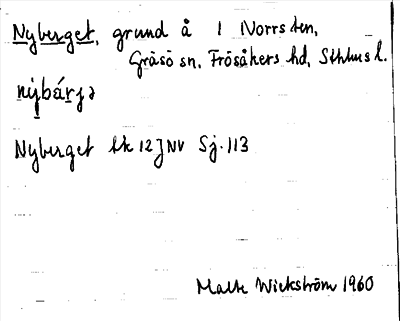 Nyberget, grund å i Norrsten,
Gräsö sn, Frösåkers hd, Sthlms l.
nýbárjə
Nyberget ek 12J NV Sj. 113
Malte Wickström 1960